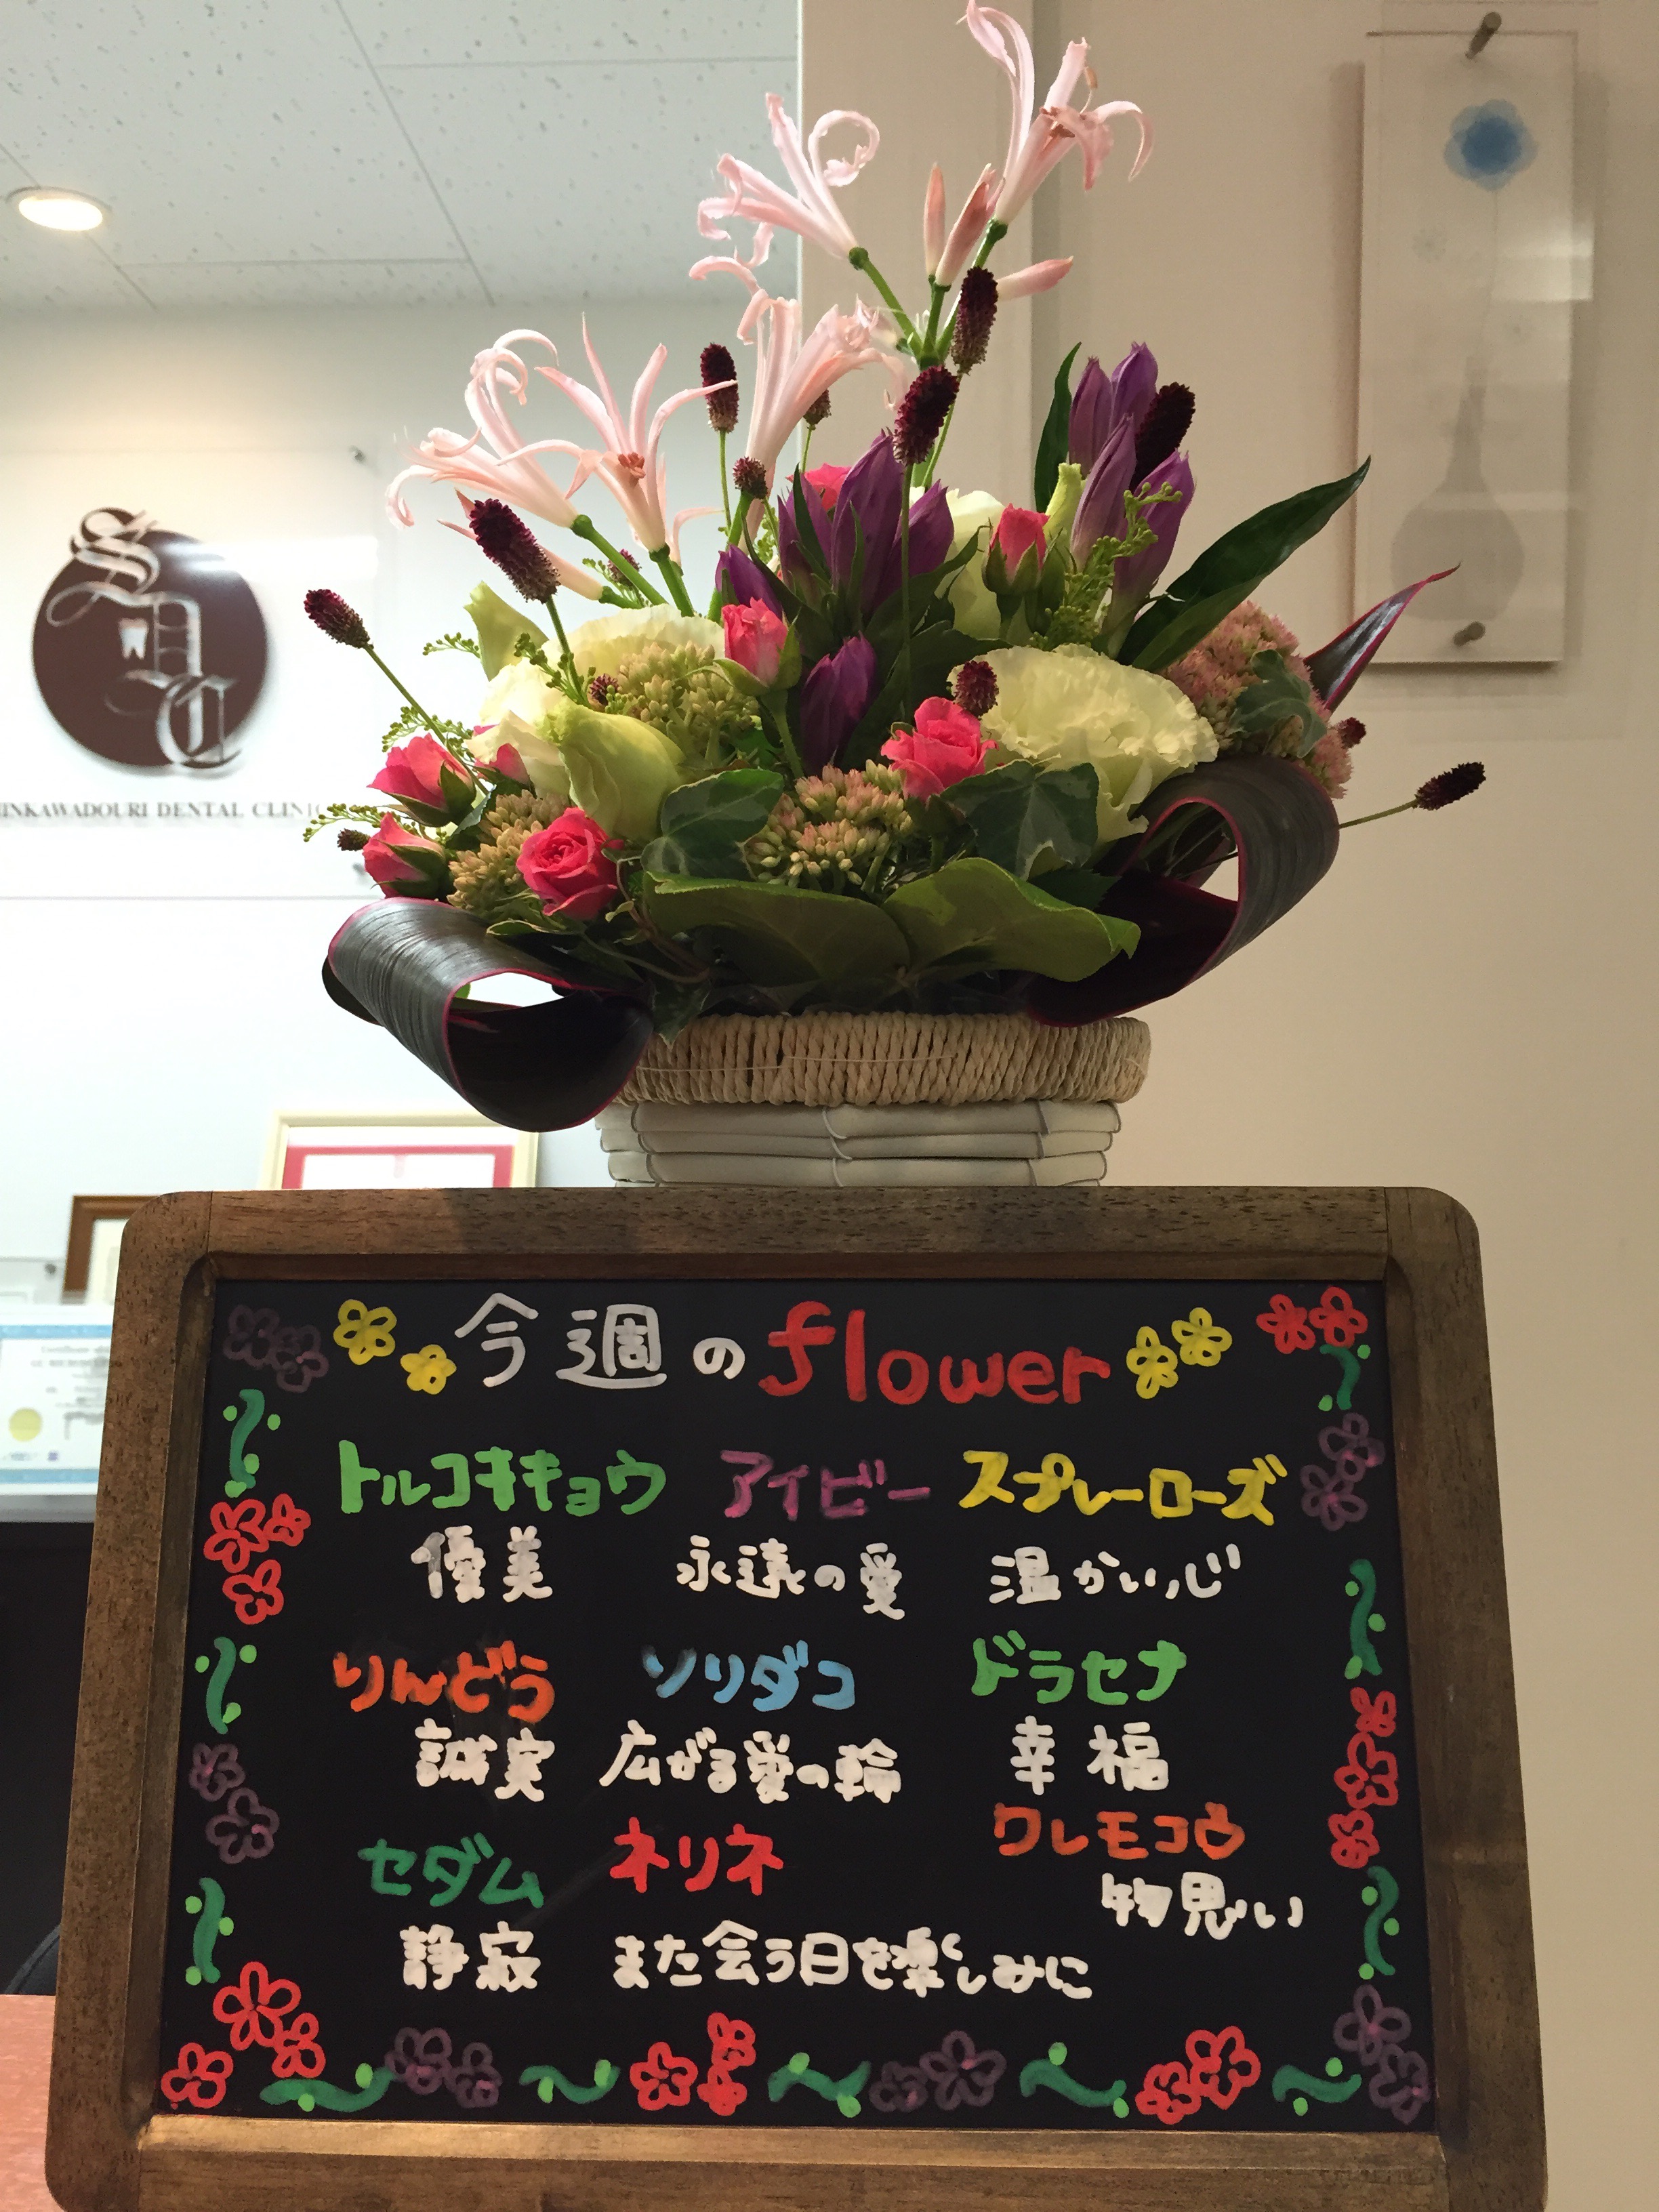 SDC
INKAWADOURI DENTAL CLINIC
今週のflower
トルコキキョウ アイビー スプレーローズ
優美 永遠の愛 温かい心
りんどう ソリダコ ドラセナ
誠実 広がる愛の輪 幸福
セダム ネリネ ワレモコウ
物思い
静寂 また会う日を楽しみに